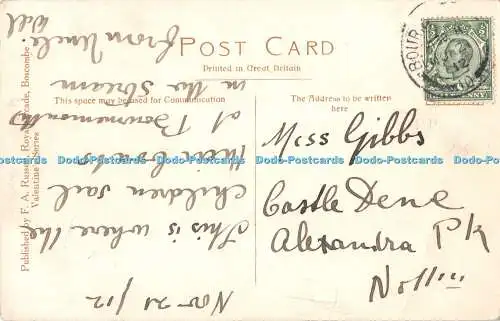 POST CARD
Printed in Great Britain
This space may be used for Communication
The Address to be written
here
Nov 21/12
This is where the
children sail
their boats
at Bournemouth
in the stream
from Uncle
Will
Miss Gibbs
Castle Dene
Alexandra Pk
Nottm
Published by F. A. Russell, Royal Arcade, Boscombe.
Valentine's Series
BOUR
HALFPENNY
Dodo-Postcards Dodo-Postcards Dodo-Postcards Dodo-Postcards Dodo-Postcards Dodo-Postcards